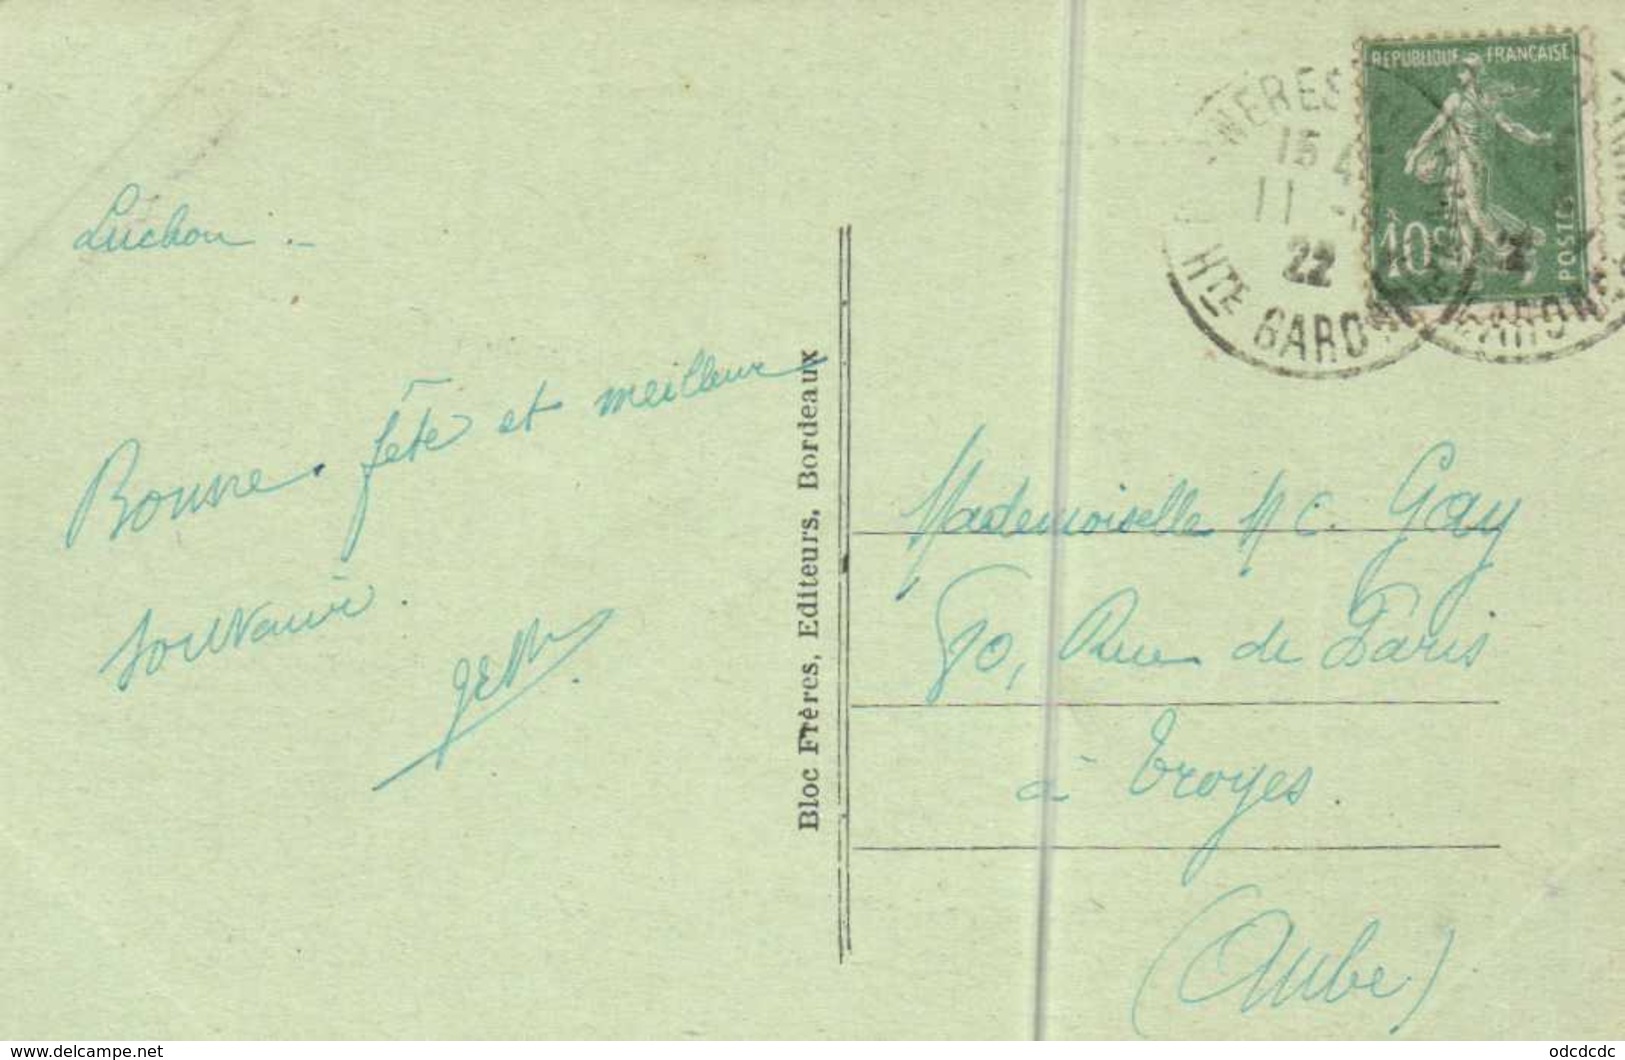 Luchon. _
Bonne fête et meilleur
souvenir.
Bloc Frères, Editeurs, Bordeaux
REPUBLIQUE FRANÇAISE
10c
POSTES
NERES
15
11
22
HTE GARONNE
GARONNE
Mademoiselle M C. Gay
90, Rue de Paris
à Troyes.
(Aube)
www.delcampe.net
odcdcdc